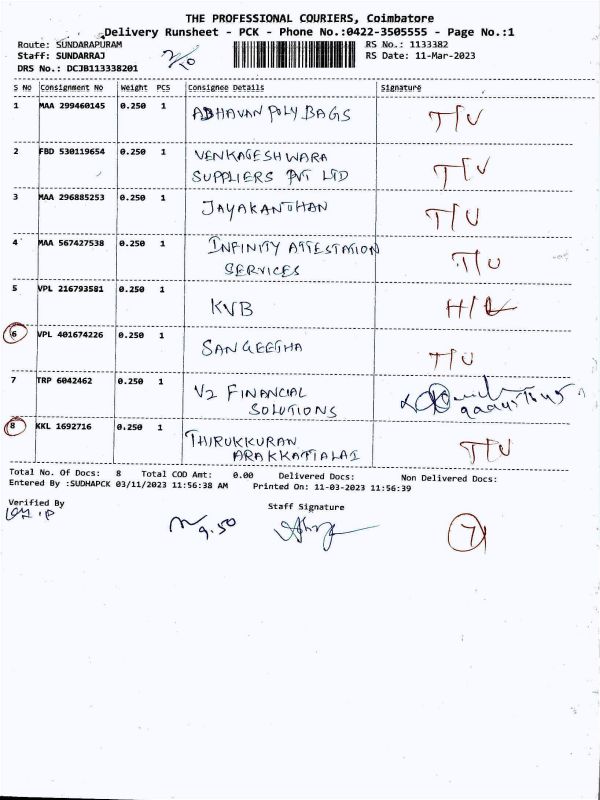 THE PROFESSIONAL COURIERS, Coimbatore
Delivery Runsheet - PCK - Phone No.:0422-3505555 - Page No.:1
Route: SUNDARAPURAM
RS No.: 1133382
Staff: SUNDARRAJ
RS Date: 11-Mar-2023
DRS No.: DCJB113338201
S No Consignment No Weight PCS Consignee Details Signature
1 MAA 299460145 0.250 1 ADHAVAN POLY BAGS T/U
2 FBD 530119654 0.250 1 VENKAGESHWARA
SUPPLIERS PVT LTD T/U
3 MAA 296885253 0.250 1 JAYAKANTHAN T/U
4 MAA 567427538 0.250 1 INFINITY ATTESTATION
SERVICES T/U
5 VPL 216793581 0.250 1 KVB
6 VPL 401674226 0.250 1 SANGEETHA T/U
7 TRP 6042462 0.250 1 V2 FINANCIAL
SOLUTIONS
8 KKL 1692716 0.250 1 THIRUKKURAN
ARAKKATTALAI T/U
Total No. Of Docs: 8 Total COD Amt: 0.00 Delivered Docs: Non Delivered Docs:
Entered By :SUDHAPCK 03/11/2023 11:56:38 AM Printed On: 11-03-2023 11:56:39
Verified By
Staff Signature
9.50
7